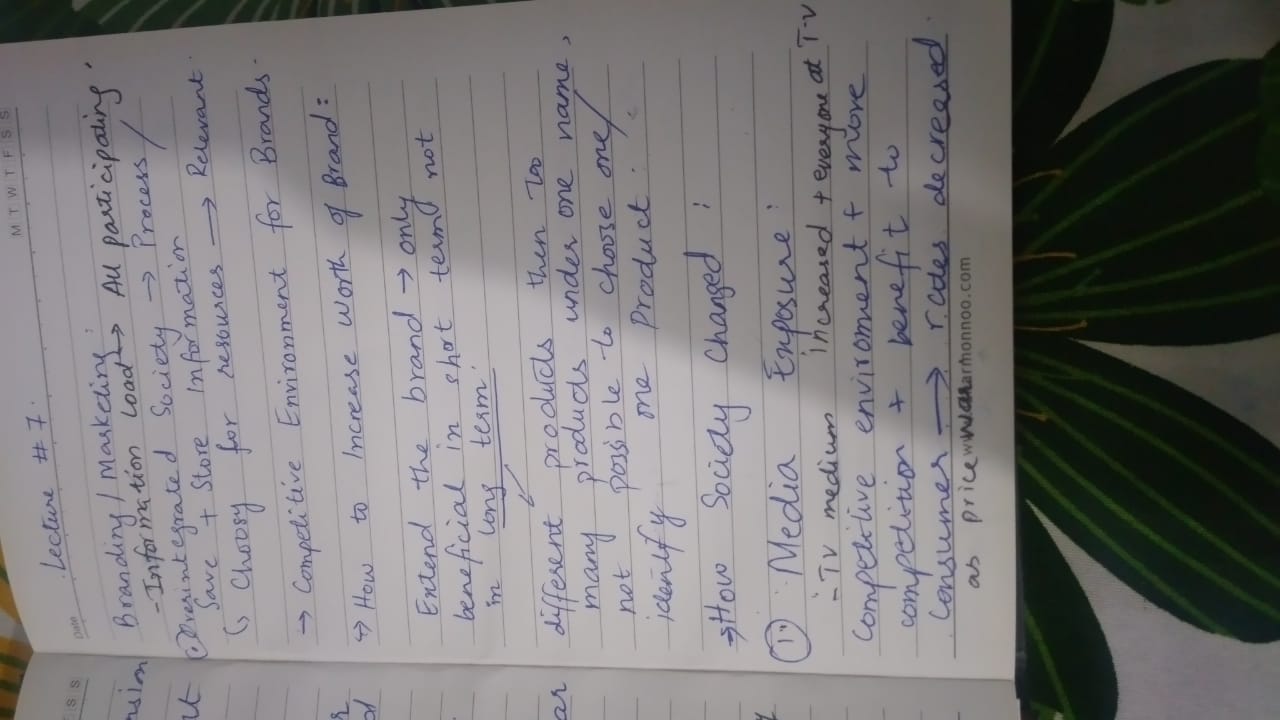 M T W T F S S
Lecture # 7.
Date
Branding / Marketing :
- Information Load → All participating.
Overintegrated Society → Process /
Save + Store Information
↳ Choosy for resources → Relevant.
→ Competitive Environment for Brands.
↪ How to Increase worth of Brand :
Extend the brand → only
beneficial in short term not
in long term.
different products then Too
many products under one name,
not possible to choose one /
identify one Product.
⇒ How Society Changed :
1. Media Exposure :
- TV medium increased + everyone at T.V
Competitive enviroment + more
competition + benefit to
Consumer → rates decreased.
as price war
armonnoo.com
S S
nsion
ut
ar